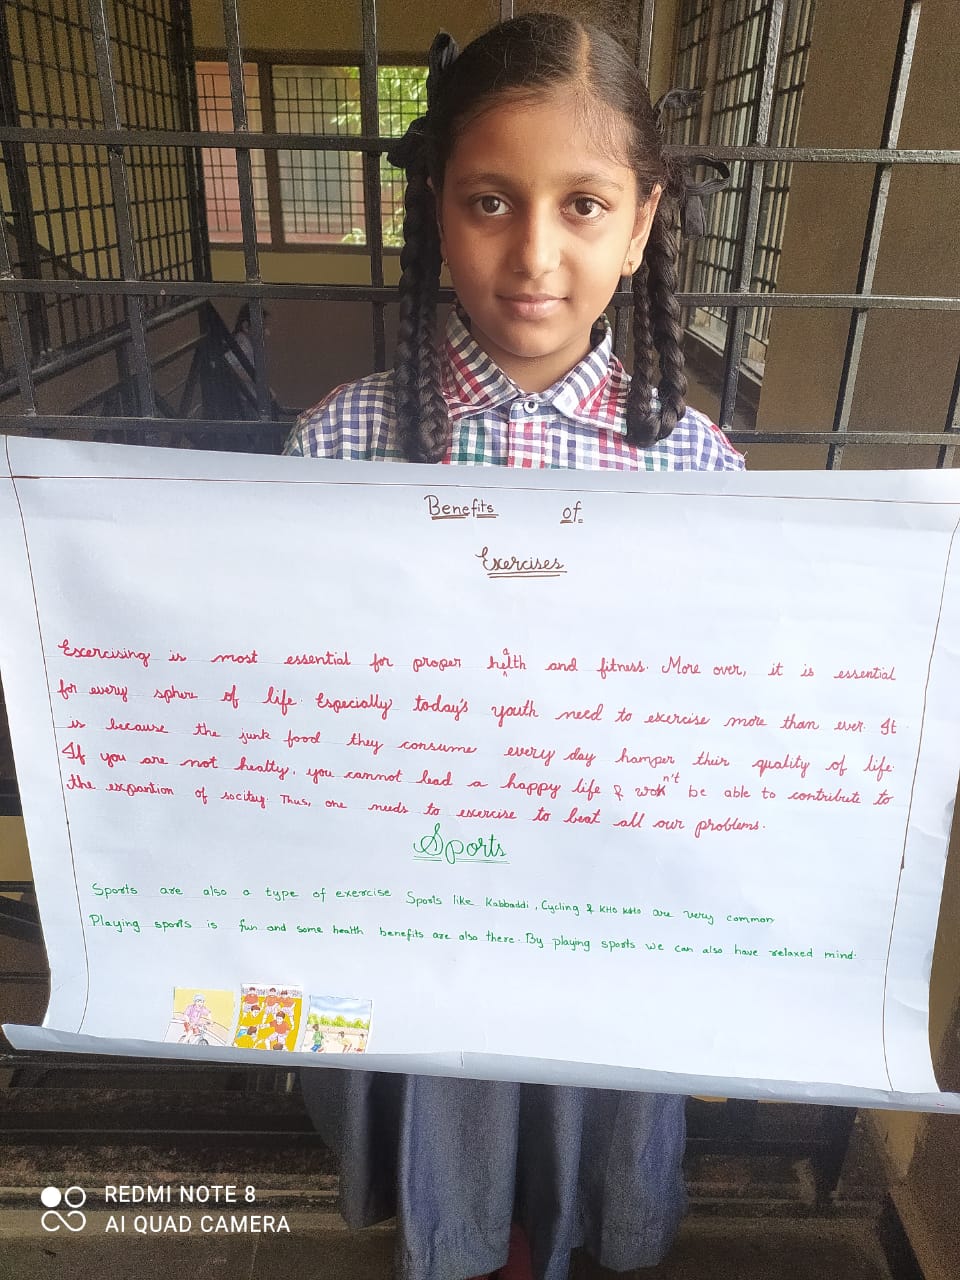 Benefits of
Exercises
Excercising is most essential for proper health and fitness. More over, it is essential
for every sphere of life. Especially today's youth need to exercise more than ever. It
is because the junk food they consume every day hamper their quality of life.
If you are not healty, you cannot lead a happy life & won't be able to contribute to
the expantion of socitey. Thus, one needs to exercise to beat all our problems.
Sports
Sports are also a type of exercise Sports like Kabbaddi, Cycling & KHO KHO are very common
Playing sports is fun and some health benefits are also there. By playing sports we can also have relaxed mind.
REDMI NOTE 8
AI QUAD CAMERA